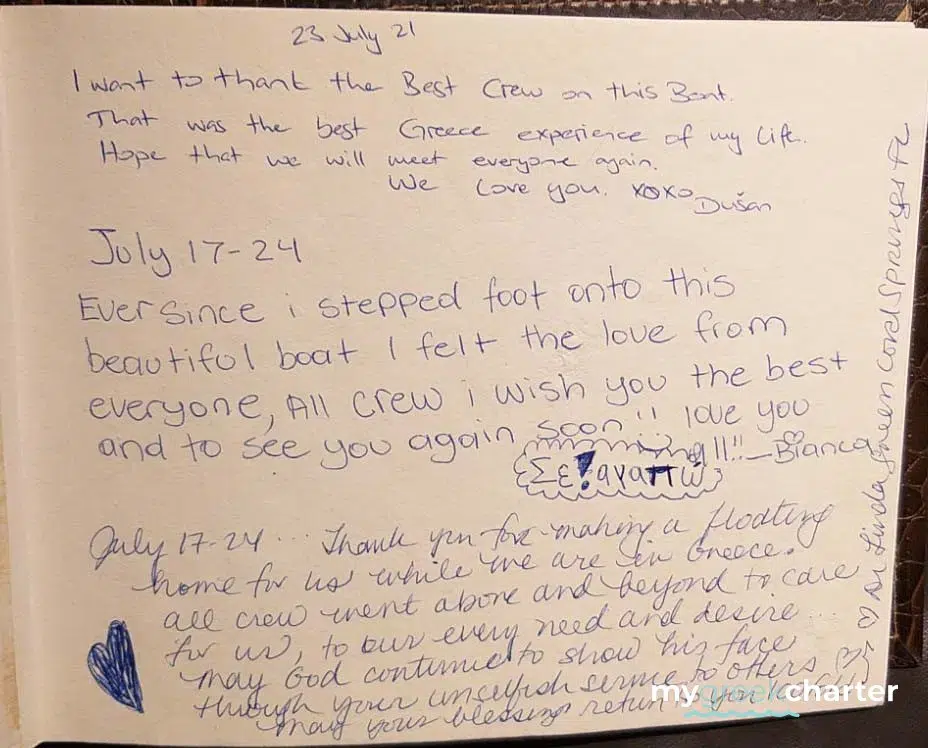 23 July 21
I want to thank the Best Crew on this Boat.
That was the best Greece experience of my Life.
Hope that we will meet everyone again.
We Love you. XOXO
Dušan
July 17-24
Ever since i stepped foot onto this
beautiful boat I felt the love from
everyone, All crew i wish you the best
and to see you again soon!! love you
all!! - Bianca
Σε! αγαπώ
July 17-24 ... Thank you for making a floating
home for us while we are in Greece.
all crew went above and beyond to care
for us, to our every need and desire...
may God continue to show his face
through your unselfish service to others
may your blessings return to you
♡ Linda Green Coral Springs FL
mygreekcharter